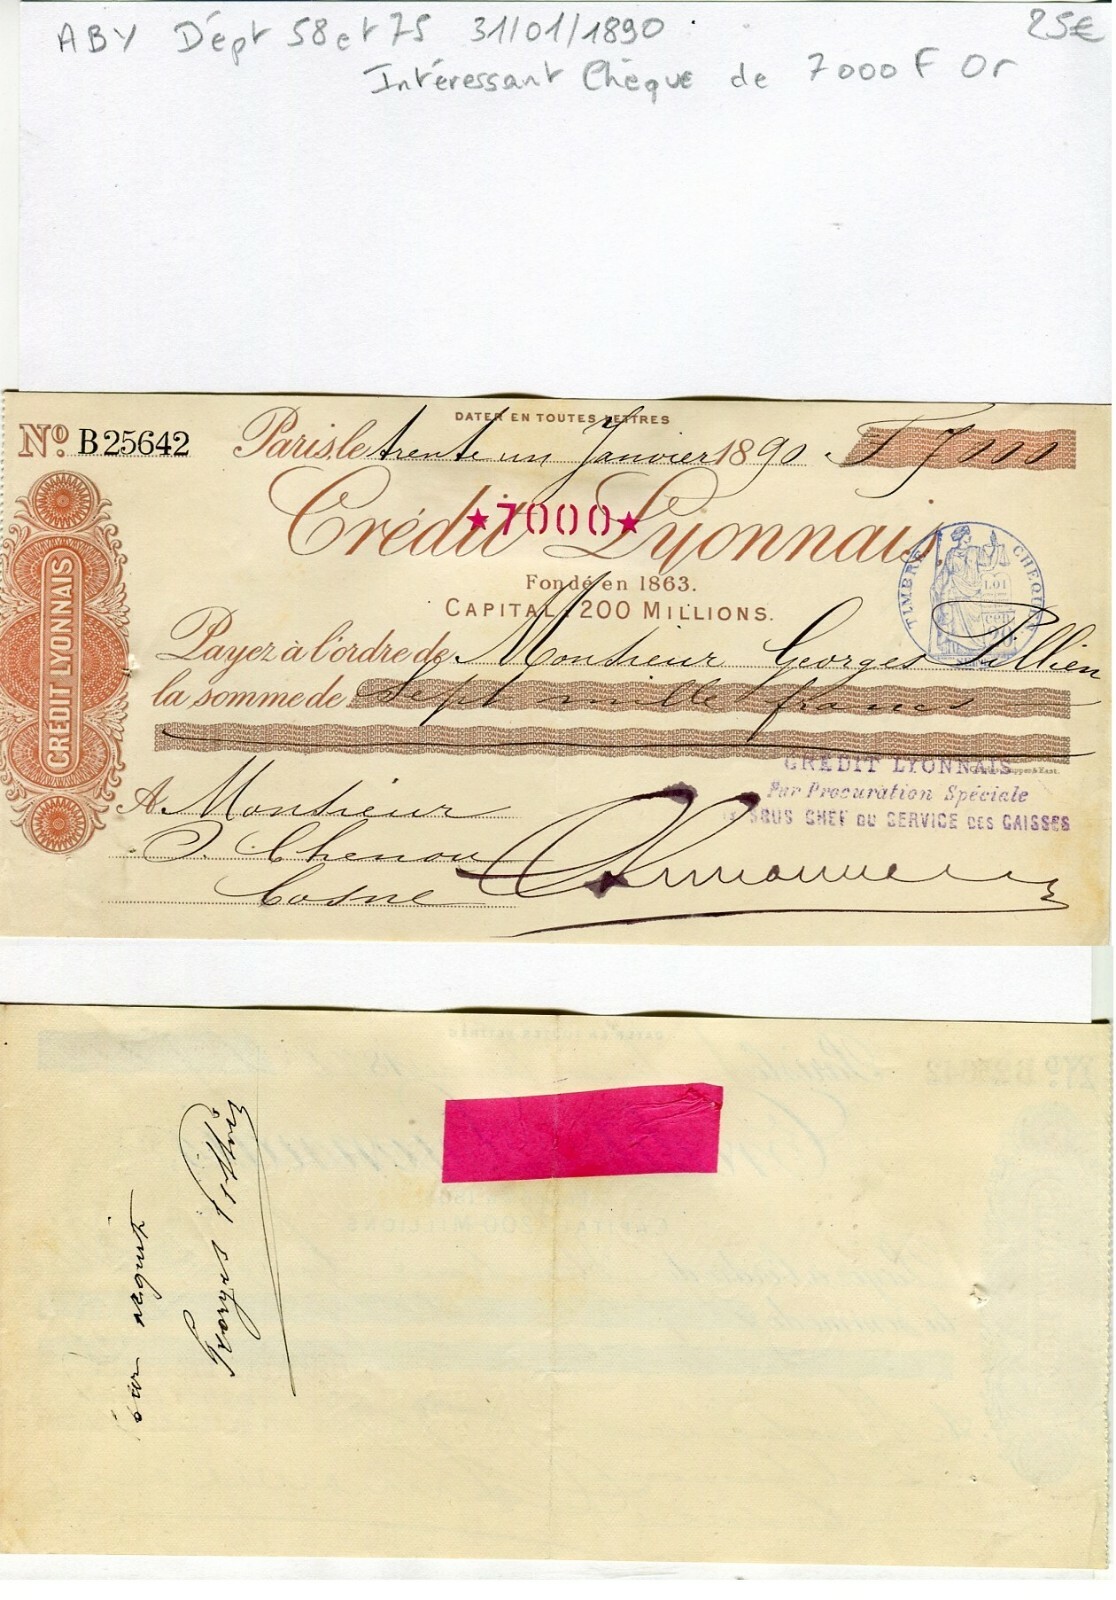 ABY Dépt 58 et 75 31/01/1890 25€
Intéressant Chèque de 7000 F Or
DATER EN TOUTES LETTRES
Nº B25642 Paris, le trente un Janvier 1890 F 7000
Crédit Lyonnais
★7000★
Fondé en 1863.
CAPITAL: 200 MILLIONS.
TIMBRE CHEQUES
LOI
20
CREDIT LYONNAIS
Payez à l'ordre de Monsieur Georges Pillien
la somme de Sept mille francs
CRÉDIT LYONNAIS
Par Procuration Spéciale
SOUS CHEF DU SERVICE DES CAISSES
A Monsieur
Chenou
Cosne
Pour acquit
Georges Pillien